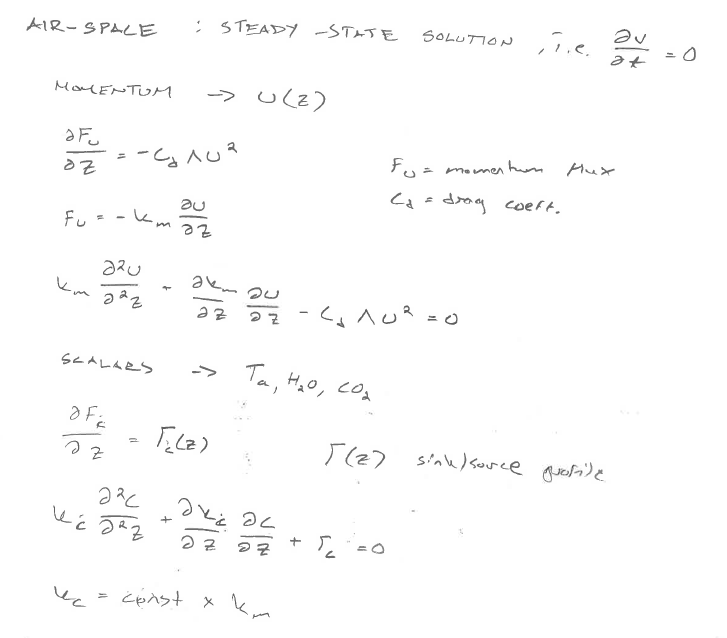 AIR-SPACE : STEADY-STATE SOLUTION, i.e. ∂v/∂t = 0
MOMENTUM -> U(z)
∂Fu/∂z = -Cd Λ U²
Fu = momentum flux
Fu = -km ∂U/∂z
Cd = drag coeff.
km ∂²U/∂²z + ∂km/∂z ∂U/∂z - Cd Λ U² = 0
SCALARS -> Ta, H2O, CO2
∂Fc/∂z = Γc(z)
Γ(z) sink/source profile
kc ∂²C/∂²z + ∂kc/∂z ∂C/∂z + Γc = 0
kc = const x km